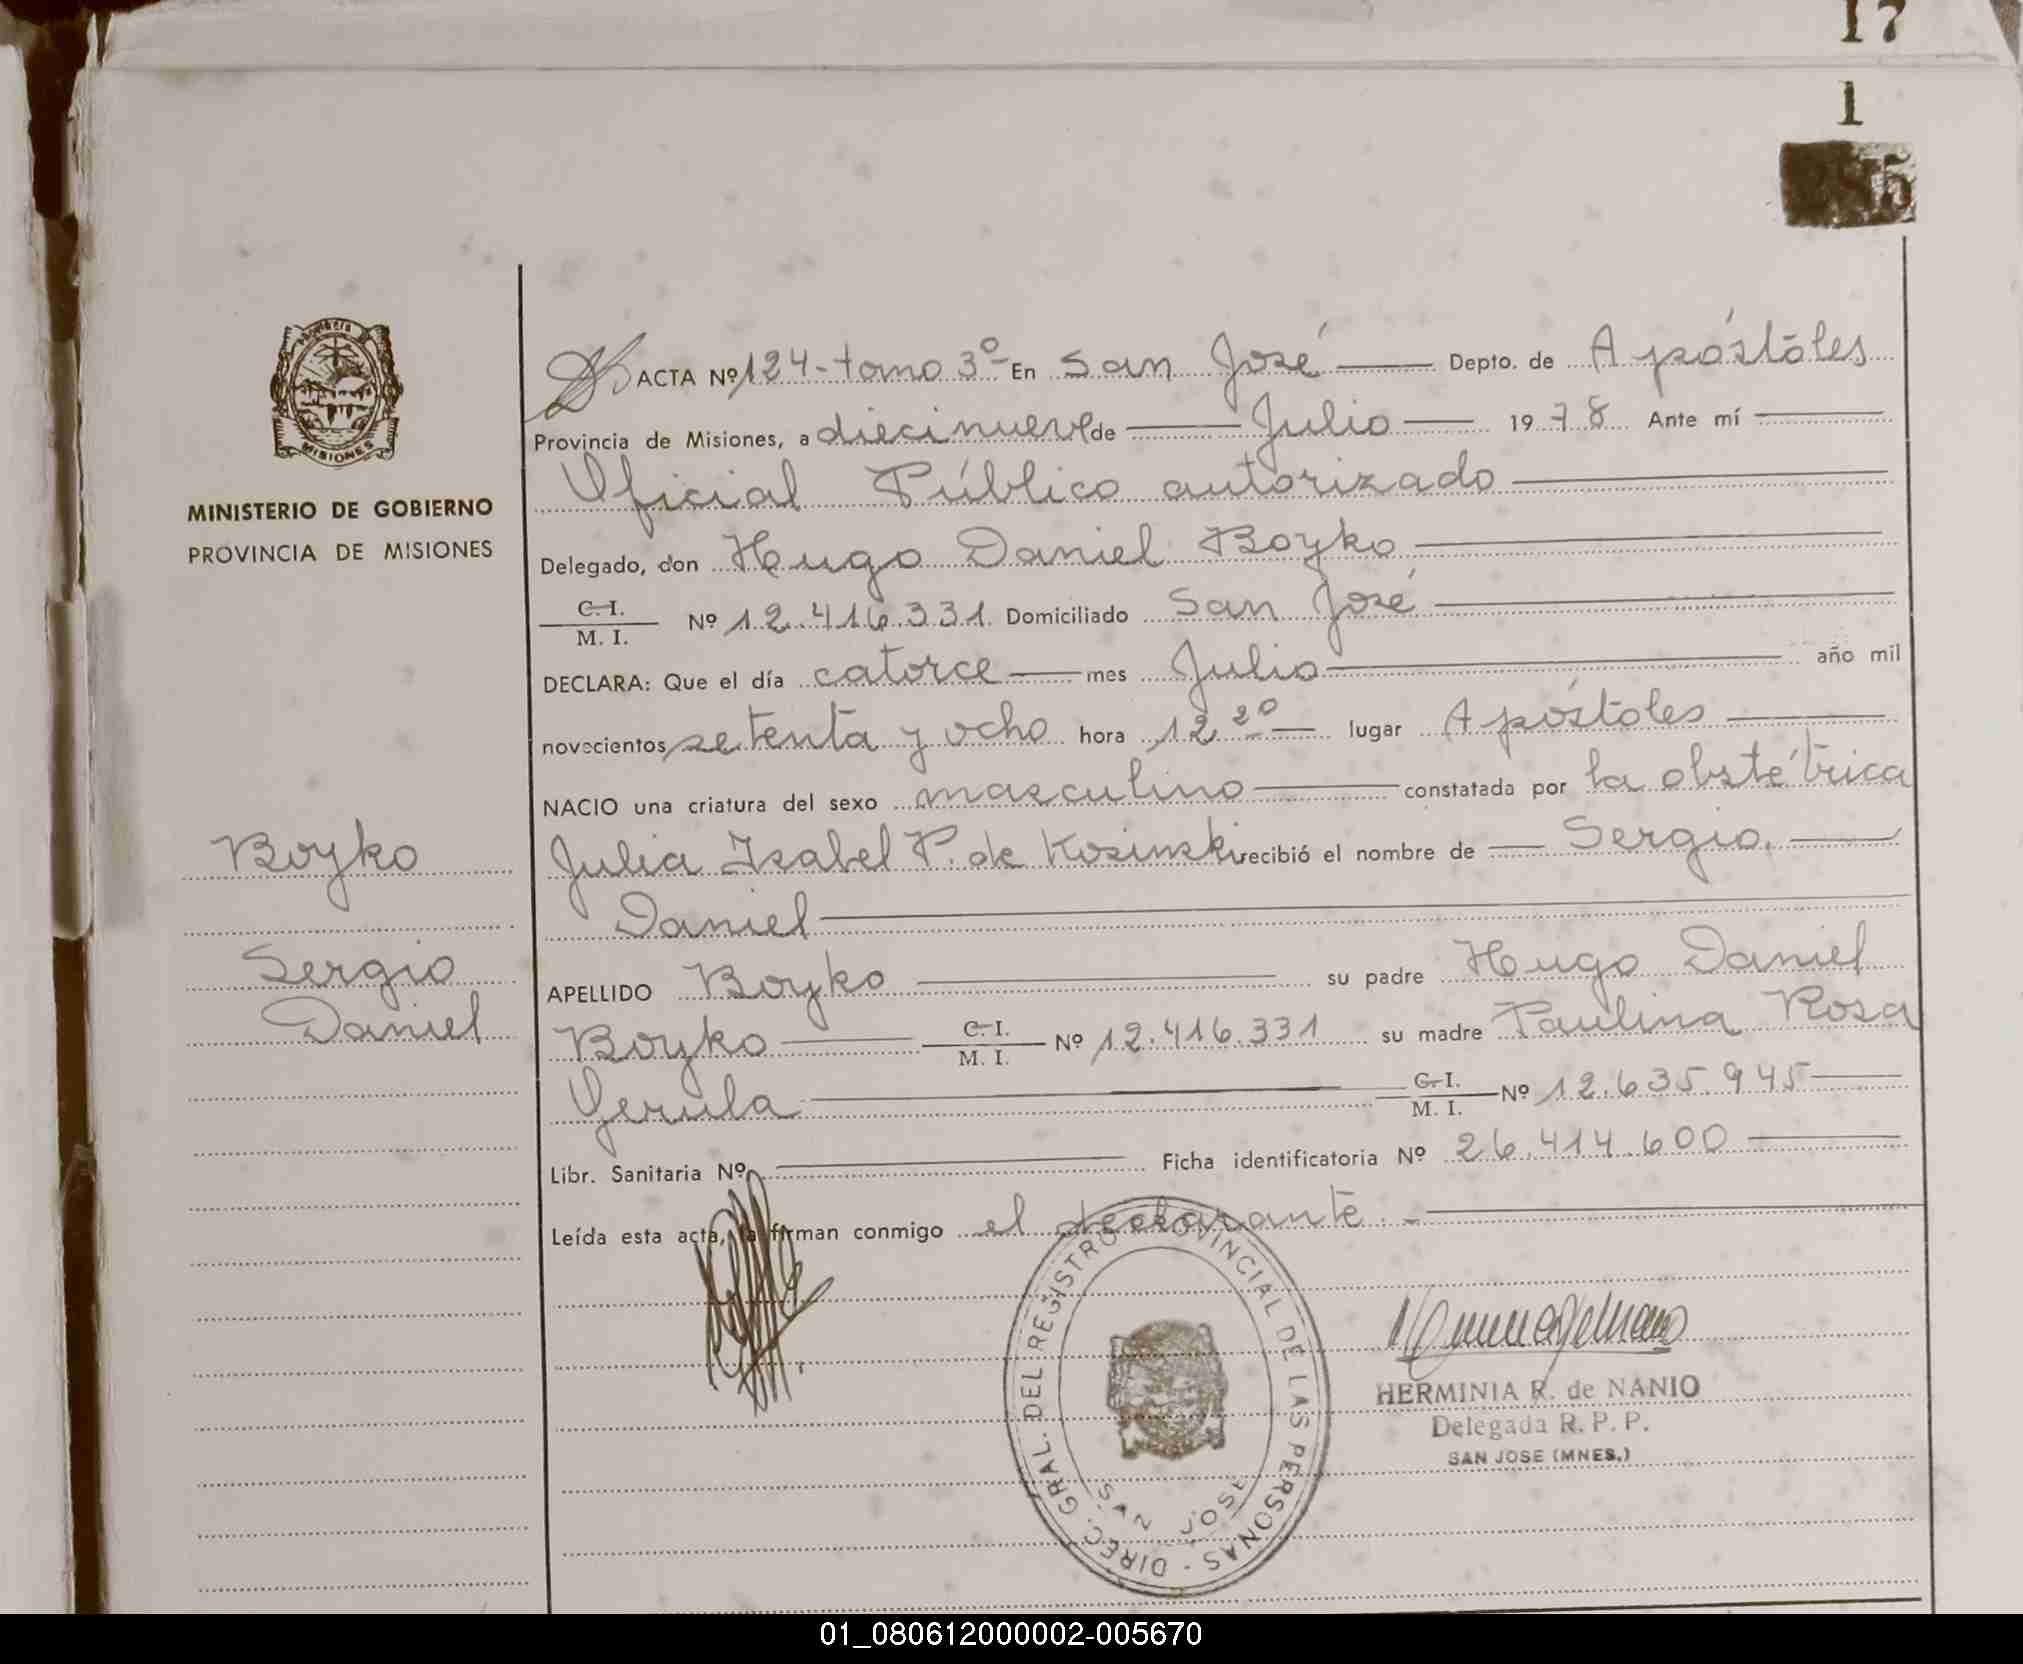 17
1
MISIONES
MINISTERIO DE GOBIERNO
PROVINCIA DE MISIONES
Boyko
Sergio
Daniel
ACTA Nº 124 - tomo 3º - En San José Depto. de Apóstoles
Provincia de Misiones, a diecinueve de Julio 1978 Ante mí
Oficial Público autorizado
Delegado, don Hugo Daniel Boyko
C. I.
M. I. Nº 12.416.331 Domiciliado San José
DECLARA: Que el día catorce mes Julio año mil
novecientos setenta y ocho hora 12 20 lugar Apóstoles
NACIO una criatura del sexo masculino constatada por la obstétrica
Julia Isabel P. de Kosinski recibió el nombre de Sergio.
Daniel
APELLIDO Boyko su padre Hugo Daniel
Boyko C. I. M. I. Nº 12.416.331 su madre Paulina Rosa
Gerula C. I. M. I. Nº 12.635.945
Libr. Sanitaria Nº Ficha identificatoria Nº 26.414.600
Leída esta acta, la firman conmigo el declarante. -
DIREC. GRAL. DEL REGISTRO PROVINCIAL DE LAS PERSONAS -
SAN JOSE
HERMINIA R. de NANIO
Delegada R. P. P.
SAN JOSE (MNES.)
01_080612000002-005670